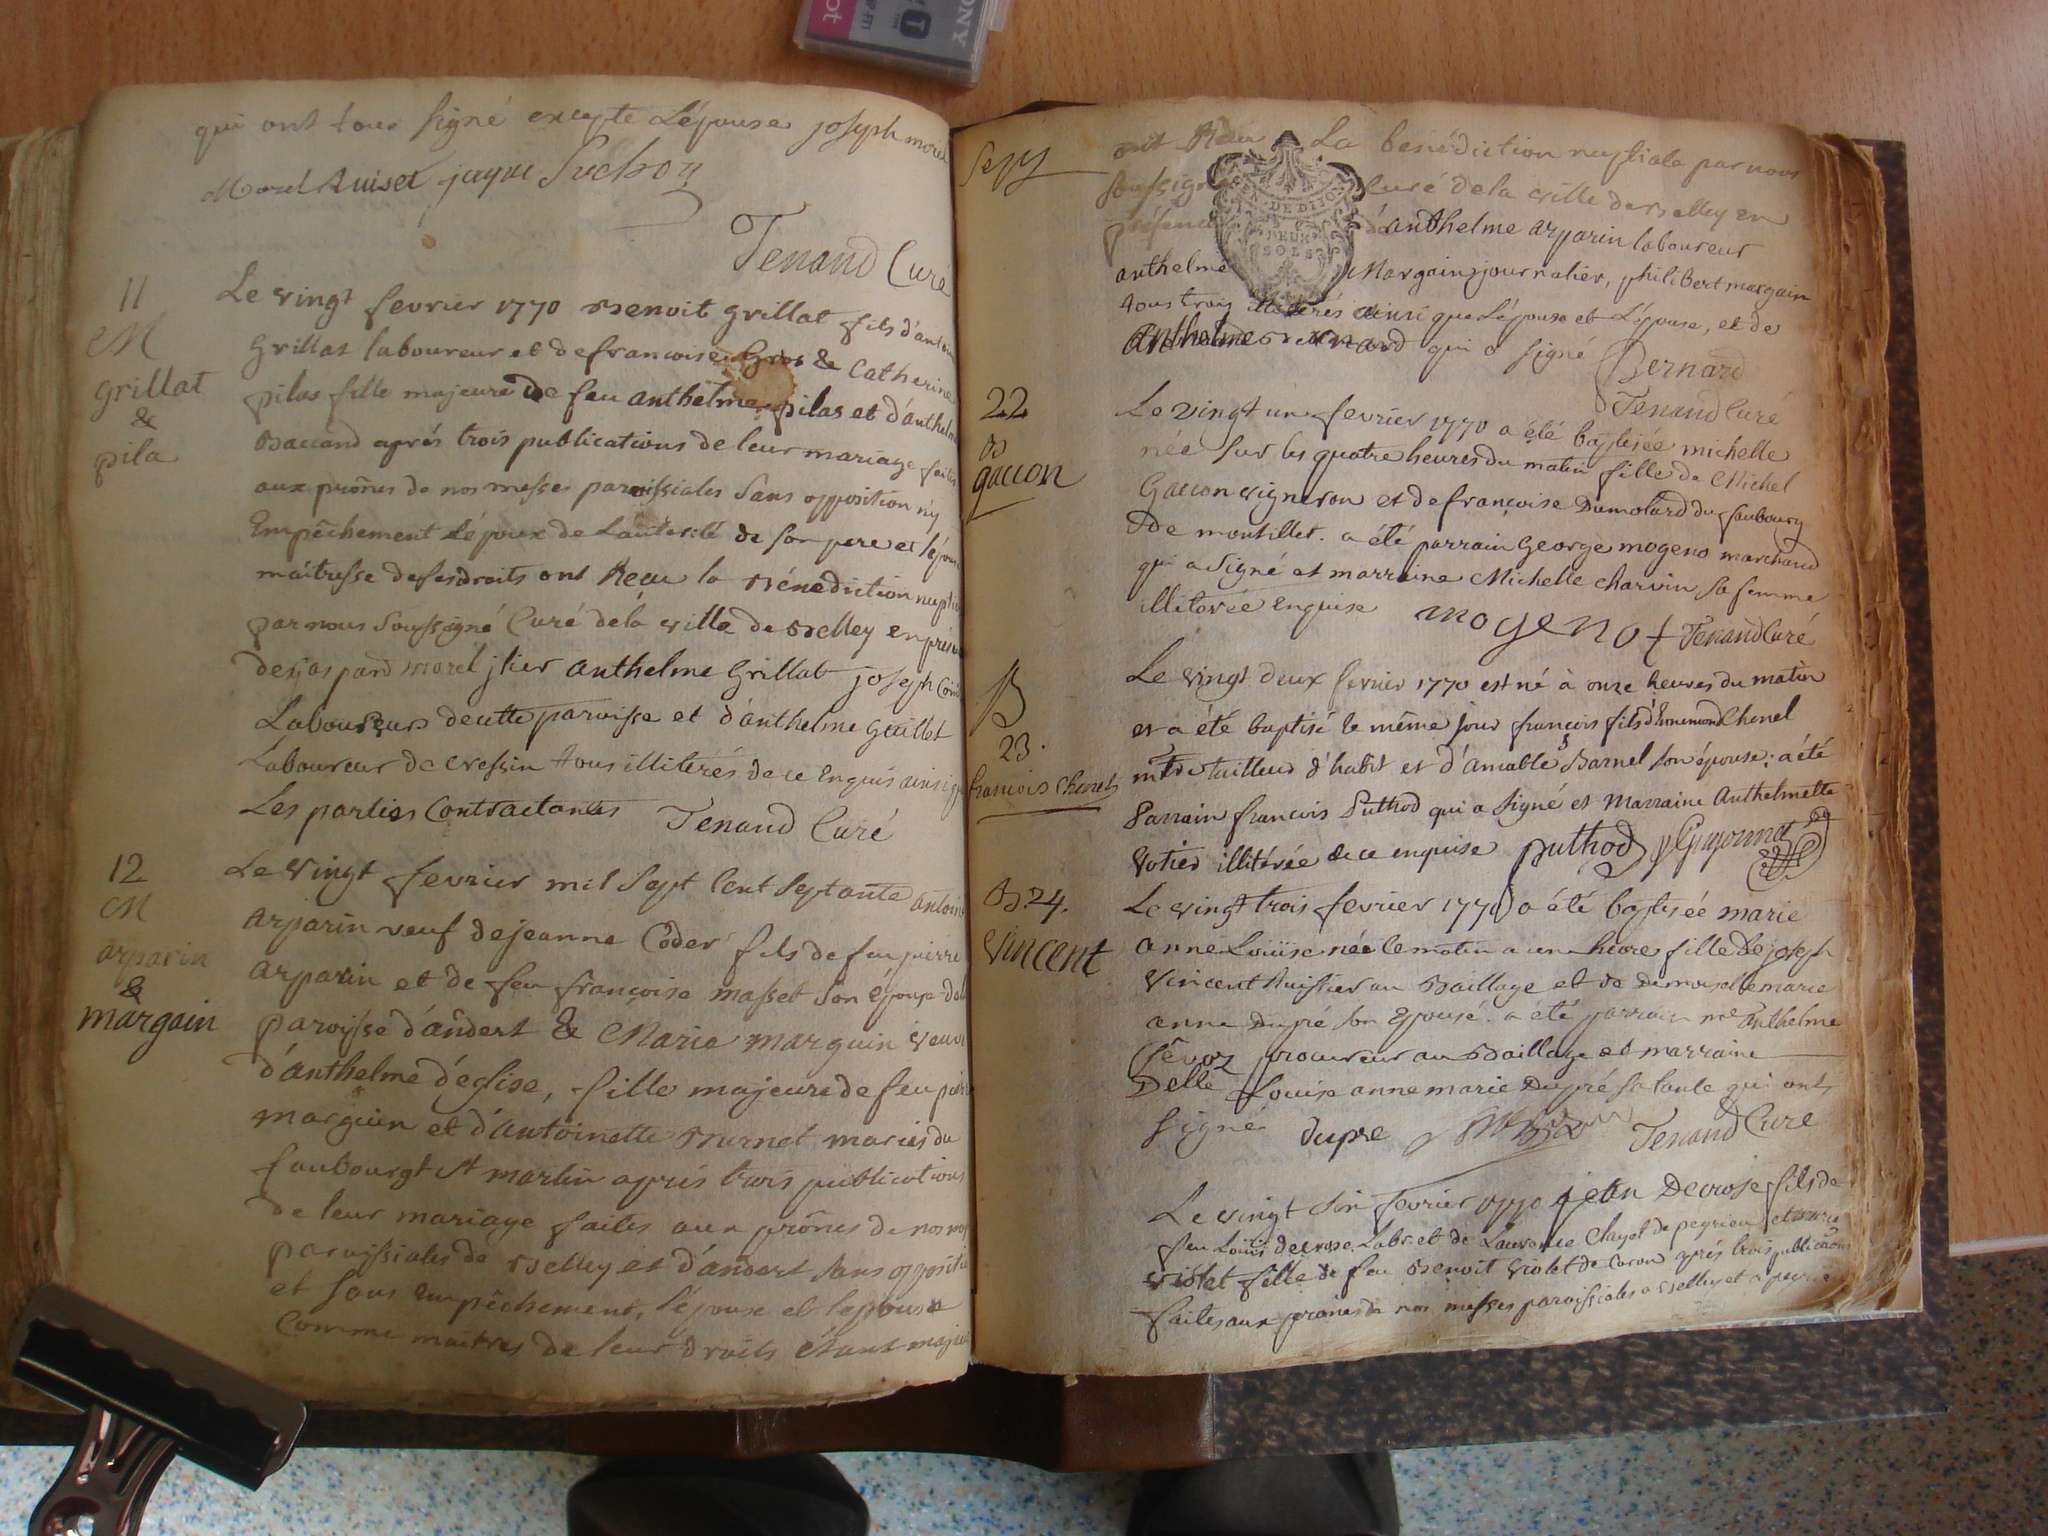 SONY
qui ont tous signé excepté L'épouse joseph morel
Morel Ruiset jaque Suchon
Tenand Curé
11
M
grillat
&
pila
Le vingt fevrier 1770 Benoit grillat fils d'antoine
Grillat laboureur et de francoise Gros & Catherine
pilas fille majeure de feu anthelme pilas et d'anthel
Baccand aprés trois publications de leur mariage faites
aux prônes de nos messes paroissiales sans opposition ny
Empêchement L'époux de L'autorité de son pere et l'épous
maitresse de ses droits ont Recu la Bénediction nuptia
par nous soussigné Curé de la ville de Belley en prése
de gaspard morel jtier anthelme Grillat joseph
Laboureurs de cette paroisse et d'anthelme guillet
Laboureur de cressin tous illitérés de ce Enquis ainsi que
Les parties Contractantes Tenand Curé
12
M
arparin
&
margain
Le vingt fevrier mil sept Cent septante antoine
arparin veuf de jeanne Côder fils de feu pierre
arparin et de feu françoise masset son épouse de la
paroisse d'andert & Marie marguin veuve
d'anthelme d'église, fille majeure de feu
marguin et d'Antoinette Burnet mariés du
faubourgt St martin aprés trois publications
de leur mariage faites aux prônes de nos
paroissiales de Belley et d'andert sans oppositi
et sans Empêchement, l'époux et l'épouse
Comme maitres de leur droits étant majeu
Sepy
ont Recu La bénédiction nuptiale par nous
soussigné Curé de la ville de Belley en
présence d'anthelme arparin laboureur
anthelme Margain journalier, philibert margain
tous trois illitérés ainsi que L'époux et L'épouse, et de
Anthelme Bernard qui a signé Bernard
Tenand Curé
DE DIJO
DEUX
SOLS
22
B
gaccon
Le vingt un fevrier 1770 a été baptisée michelle
née sur les quatre heures du matin fille de Michel
Gaccon vigneron et de françoise Dumolard du faubourg
de montillet. a été parrain George mogeno marchand
qui a signé et marraine Michelle charvin sa femme
illiterée enquise mogeno Tenand Curé
B
23.
francois Chenel
Le vingt deux fevrier 1770 est né à onze heures du matin
et a été baptisé le même jour françois fils d'Ennemond Chenel
mtre tailleur d'habit et d'amable Barnel son épouse; a été
Parrain francois Puthod qui a signé et Marraine Anthelmette
Votier illitérée de ce enquise puthod
B. 24.
Vincent
Le vingt trois fevrier 1770 a été baptisée marie
anne Louise née le matin a une heure fille de joseph
Vincent huissier au Baillage et de demoiselle marie
anne Dupré son Epouse. a été parrain me anthelme
procureur au Baillage et marraine
Delle Louise anne marie Dupré sa tante qui ont
signé dupre Tenand Curé
Le vingt six fevrier 1770 jean Decrose fils de
feu Louis decrose Labr. et de Laurence Clayet de peyrieu et
violet fille de feu Benoit violet de Coron aprés trois publications
faites aux prônes de nos messes paroissiales a Belley et a peyrie